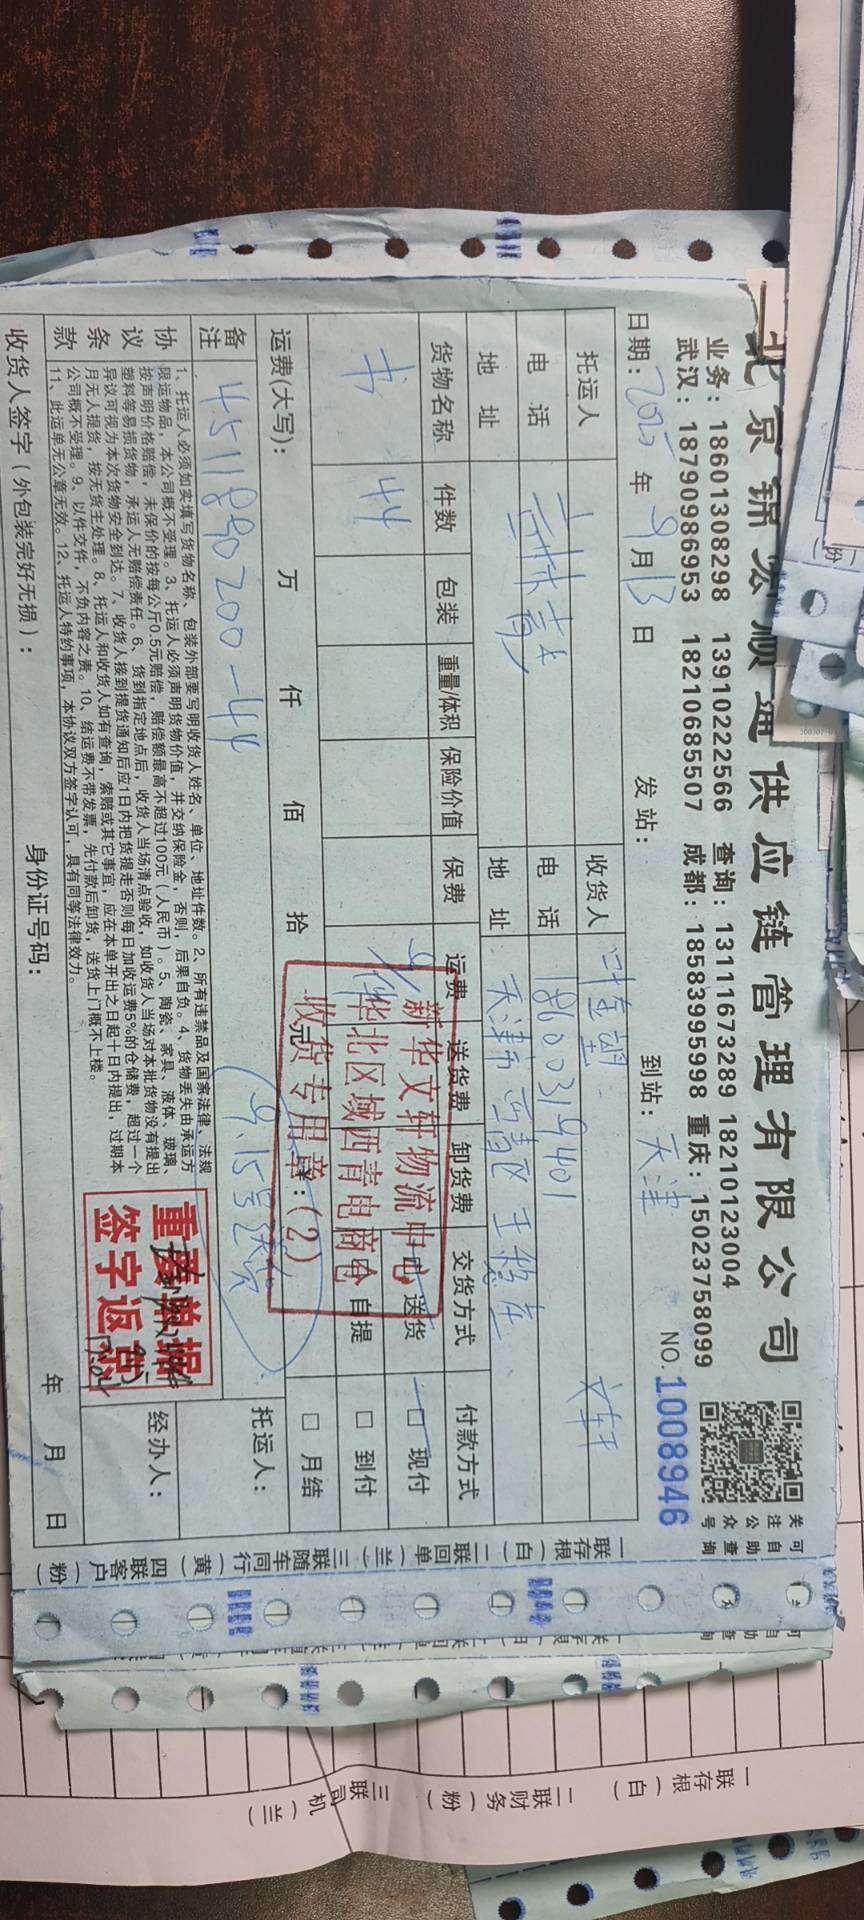 北京锦宏顺通供应链管理有限公司
业务：18601308298 13910222566 查询：13111673289 18210123004
武汉：18790986953 18210685507 成都：18583995998 重庆：15023758099
关注公众号
可自助查询
日期：2025年9月13日 发站： 到站：天津 NO.1008946
托运人 收货人 叶金望 文轩
电话 电话 18600319401
地址 地址 天津市西青区王稳庄
货物名称 件数 包装 重量/体积 保险价值 保费 运费 送货费 卸货费 交货方式 付款方式
书 44 送货 □现付
自提 □到付
运费(大写)： 万 仟 佰 拾 元 □月结
新华文轩物流中心
华北区域西青电商仓
收货专用章：(2)
备注 4511890200-44 9.15号送货
托运人：
协议条款
1、托运人必须如实填写货物名称、包装外部要写明收货人姓名、单位、地址件数。2、所有违禁品及国家法律、法规
限运物品，本公司概不受理。3、托运人必须声明货物价值，并交纳保险金，否则，后果自负。4、货物丢失由承运方
按声明价格赔偿，未保价的按每公斤0.5元赔偿，赔偿额最高不超过100元（人民币）。5、陶瓷、家具、液体、玻璃、
塑料等易损货物，承运人无赔偿责任。6、货到指定地点后，收货人当场清点验收，如收货人当场对本批货物没有提出
异议可视为本次货物安全到达。7、收货人接到提货通知后应1日内把货提走否则每日加收运费5%的仓储费，超过一个
月无人提货，按无货主处理。8、托运人和收货人如有查询，索赔或其它事宜，应在本单开出之日起十日内提出，过期本
公司概不受理。9、以件交件，不负内容之责。10、结运费不带发票，先付款后卸货，送货上门概不上楼。
11、此运单无公章无效。12、托运人特约事项，本协议双方签字认可，具有同等法律效力。
重要单据
签字返回
经办人：
收货人签字（外包装完好无损）： 身份证号码： 年 月 日
一联存根（白） 二联回单（兰） 三联随车同行（黄） 四联客户（粉）
一联存根（白） 二联财务（粉） 三联司机（兰）